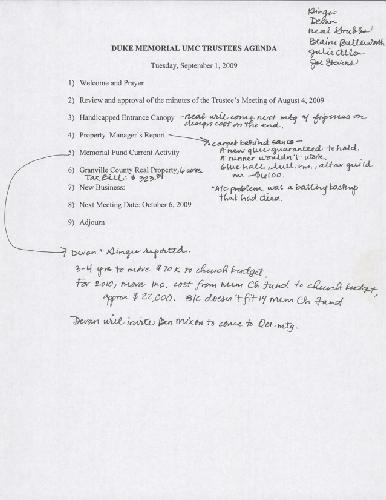 Ginger
Devan
Neal
Blaine Butterworth
Julie
Joe Stevens
DUKE MEMORIAL UMC TRUSTEES AGENDA
Tuesday, September 1, 2009
1) Welcome and Prayer
2) Review and approval of the minutes of the Trustee's Meeting of August 4, 2009
3) Handicapped Entrance Canopy - Neal will come next mtg w/ figures on
design & cost on the end.
4) Property Manager's Report
carpet behind
A new glue guaranteed to hold.
A runner wouldn't work.
5) Memorial Fund Current Activity
altar guild
$600.
6) Granville County Real Property, 6 acres
Tax Bill: $ 323.
7) New Business:
problem was a battery backup
that had died.
8) Next Meeting Date: October 6, 2009
9) Adjourn
Devan & Ginger reported.
3-4 yrs to move $70K to church budget.
For 2010, move ins. cost from Mem Ch Fund to church budget,
approx $22,000. B/c doesn't fit w/ Mem Ch Fund
Devan will invite Ben Mixon to come to Oct. mtg.